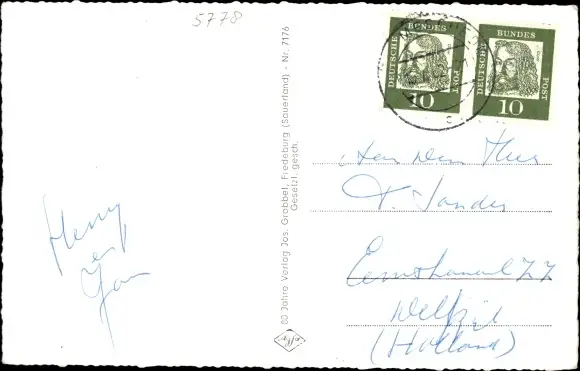 5778
DEUTSCHE BUNDES POST
10
DEUTSCHE BUNDES POST
10
80 Jahre Verlag Jos. Grobbel, Fredeburg (Sauerland) - Nr. 7176
Gesetzl. gesch.
Henny
en
Jan
Aan den Heer
Sander
Eemskanaal ZZ
Delfzijl
(Holland)